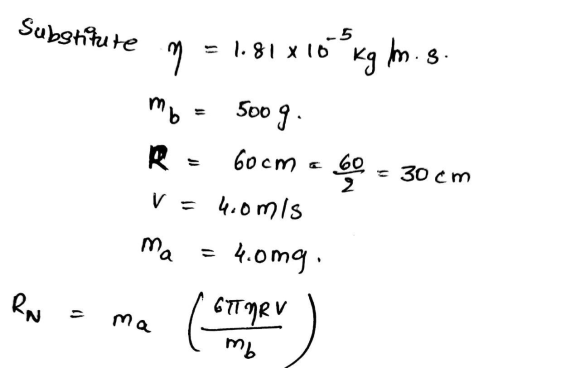 Substitute η = 1.81 x 10^-5 kg/m.s.
m_b = 500 g.
R = 60 cm = 60/2 = 30 cm
V = 4.0 m/s
m_a = 4.0mg.
R_N = m_a (6πηRV / m_b)